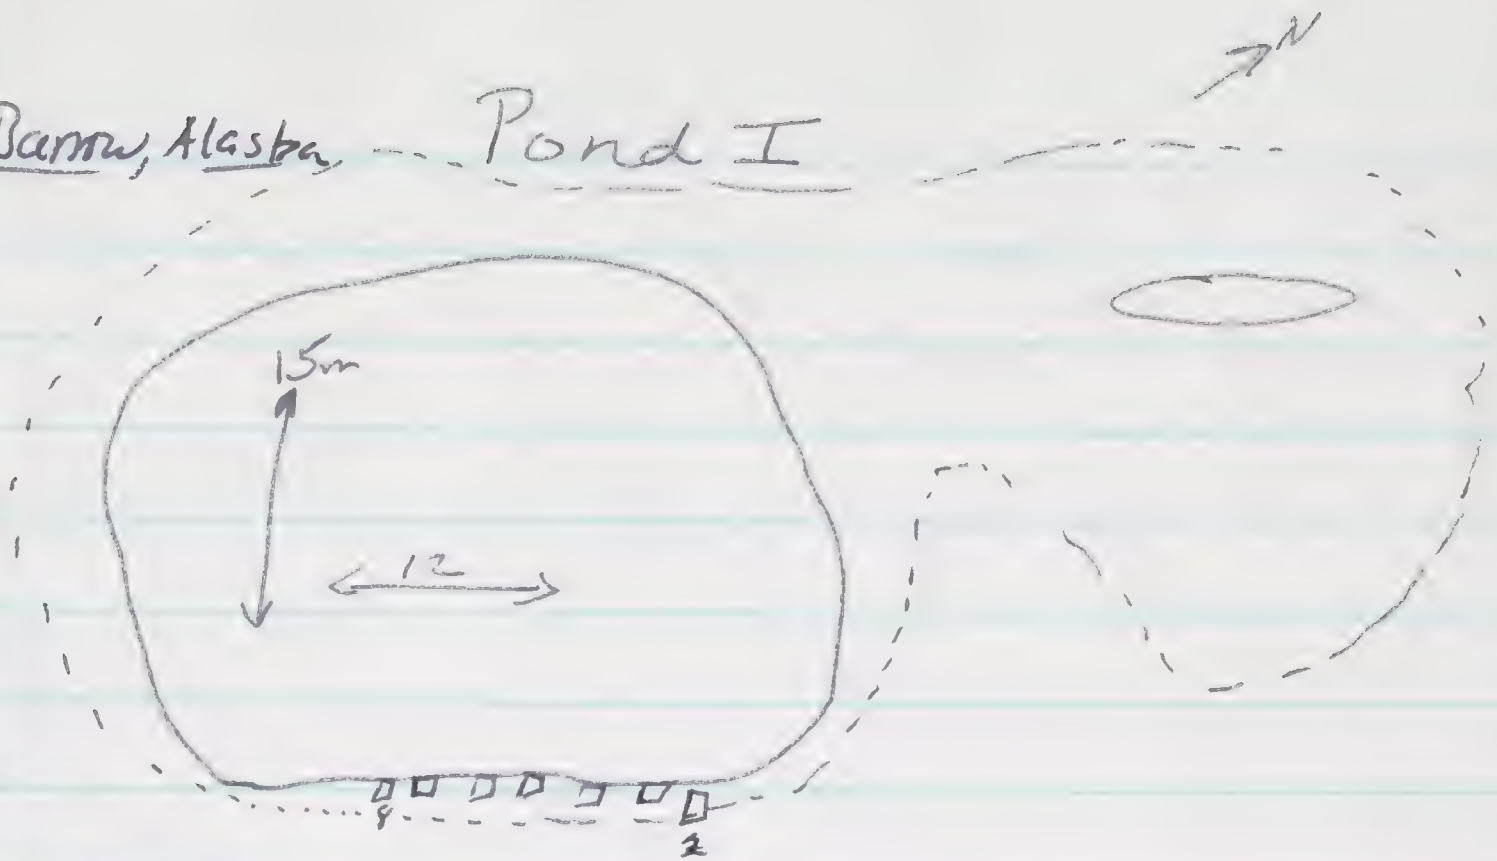 N
Barrow, Alaska, Pond I
15m
12
8
2